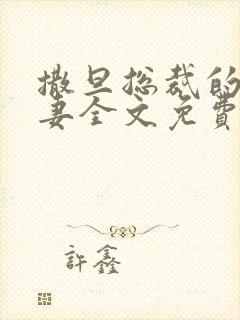 撒旦总裁的
妻全文免費
許鑫